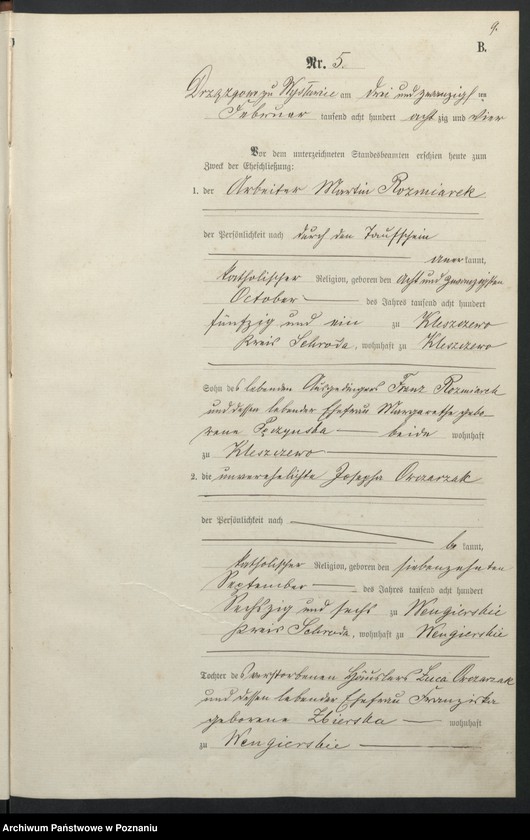 9.
B.
Nr. 5.
am drei und zwanzigsten
Februar tausend acht hundert acht zig und vier
Vor dem unterzeichneten Standesbeamten erschien heute zum
Zweck der Eheschließung:
1. der Arbeiter Martin Rozmiarek
der Persönlichkeit nach durch den Taufschein
anerkannt,
katholischer Religion, geboren den acht und zwanzigsten
October des Jahres tausend acht hundert
fünfzig und ein zu Kleszczewo
Kreis Schroda, wohnhaft zu Kleszczewo
Sohn des lebenden Ausgedingers Franz Rozmiarek
und dessen lebender Ehefrau Margarethe gebo-
rene beide wohnhaft
zu Kleszczewo
2. die unverehelichte Josepha Owczarzak
der Persönlichkeit nach
be kannt,
katholischer Religion, geboren den siebenzehnten
September des Jahres tausend acht hundert
Sechszig und sechs zu Wengierskie
Kreis Schroda, wohnhaft zu Wengierskie
Tochter des verstorbenen Häuslers Luca Owczarzak
und dessen lebender Ehefrau Franziska
geborene Zbierska wohnhaft
zu Wengierskie
Archiwum Państwowe w Poznaniu